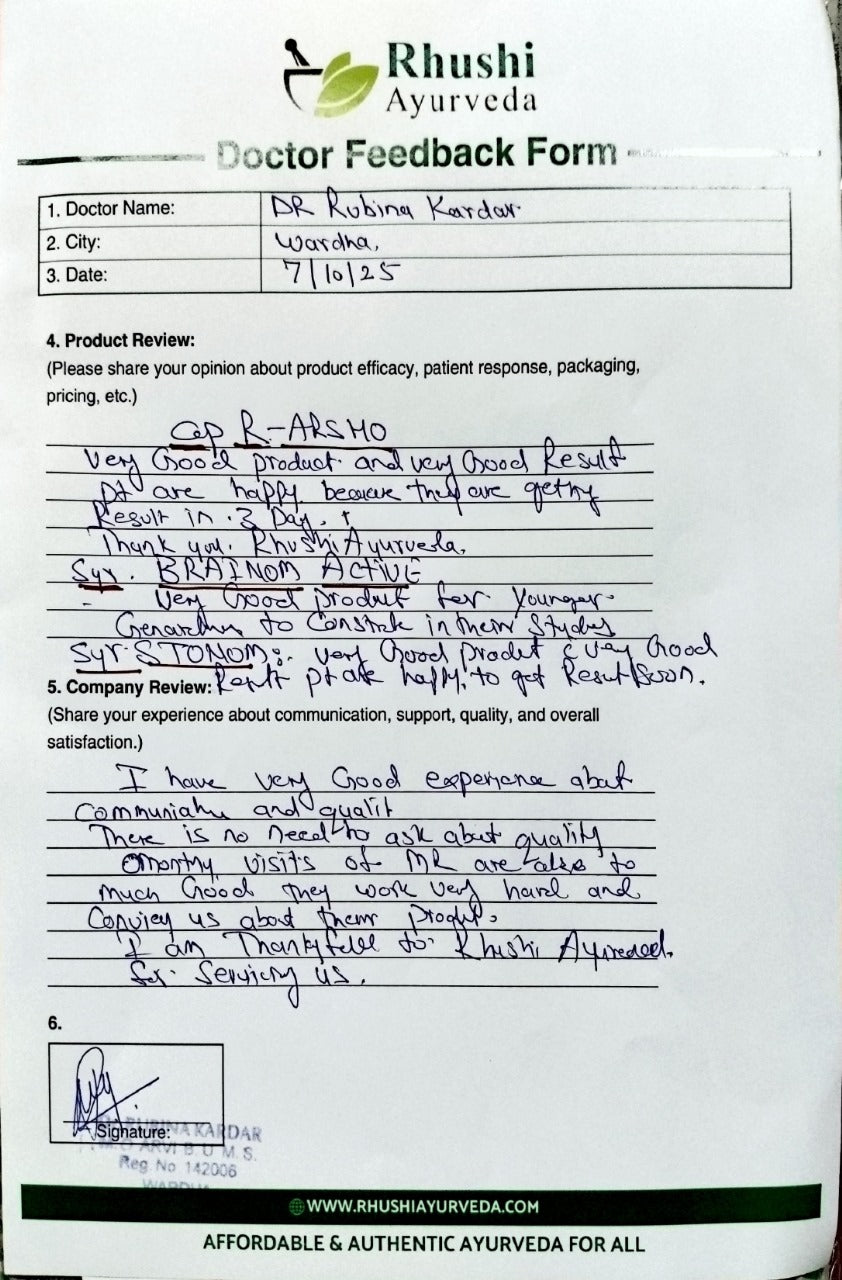 Rhushi
Ayurveda
Doctor Feedback Form
1. Doctor Name: DR Rubina Kardar
2. City: Wardha,
3. Date: 7/10/25
4. Product Review:
(Please share your opinion about product efficacy, patient response, packaging,
pricing, etc.)
Cap R-ARSHO
Very Good product and very Good Result
pt are happy because they are getting
Result in 3 Day.
Thank you. Rhushi Ayurveda.
Syr. BRAINOM ACTIVE
- Very Good product for younger
to in their Studies
Syr STONOM:- very Good product & very Good
5. Company Review: Result pt are happy to get Result Soon.
(Share your experience about communication, support, quality, and overall
satisfaction.)
I have very Good experience about
and qualit
There is no need to ask about quality
visits of MR are also to
much Good they work very hard and
us about them
I am to Rhushi
for us.
6.
Signature:
RUBINA KARDAR
B.U.M.S.
Reg. No 142006
WARDHA
WWW.RHUSHIAYURVEDA.COM
AFFORDABLE & AUTHENTIC AYURVEDA FOR ALL